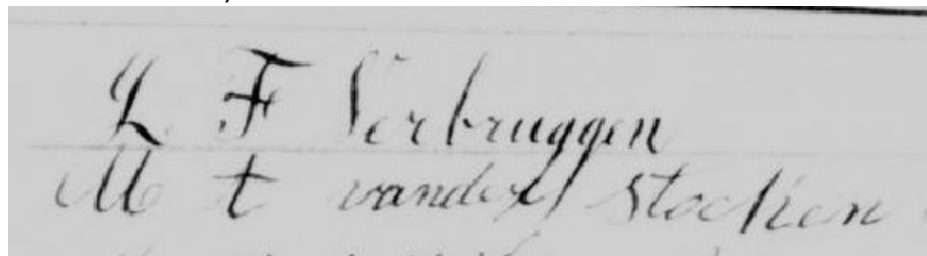 L F Verbruggen
M t vander Stocken